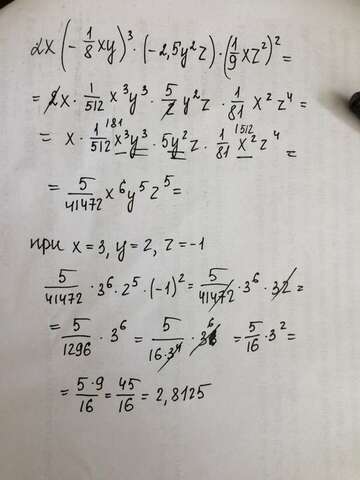 2x(-1/8xy)³·(-2,5y²z)·(1/9xz²)²=
=2x·1/512x³y³·5/2y²z·1/81x²z⁴=
=x·1/512x³y³·5y²z·1/81x²z⁴=
=5/41472x⁶y⁵z⁵=
при x=3, y=2, z=-1
5/41472·3⁶·2⁵·(-1)²=5/41472·3⁶·32=
=5/1296·3⁶=5/16·3⁴·3⁶=5/16·3²=
=5·9/16=45/16=2,8125